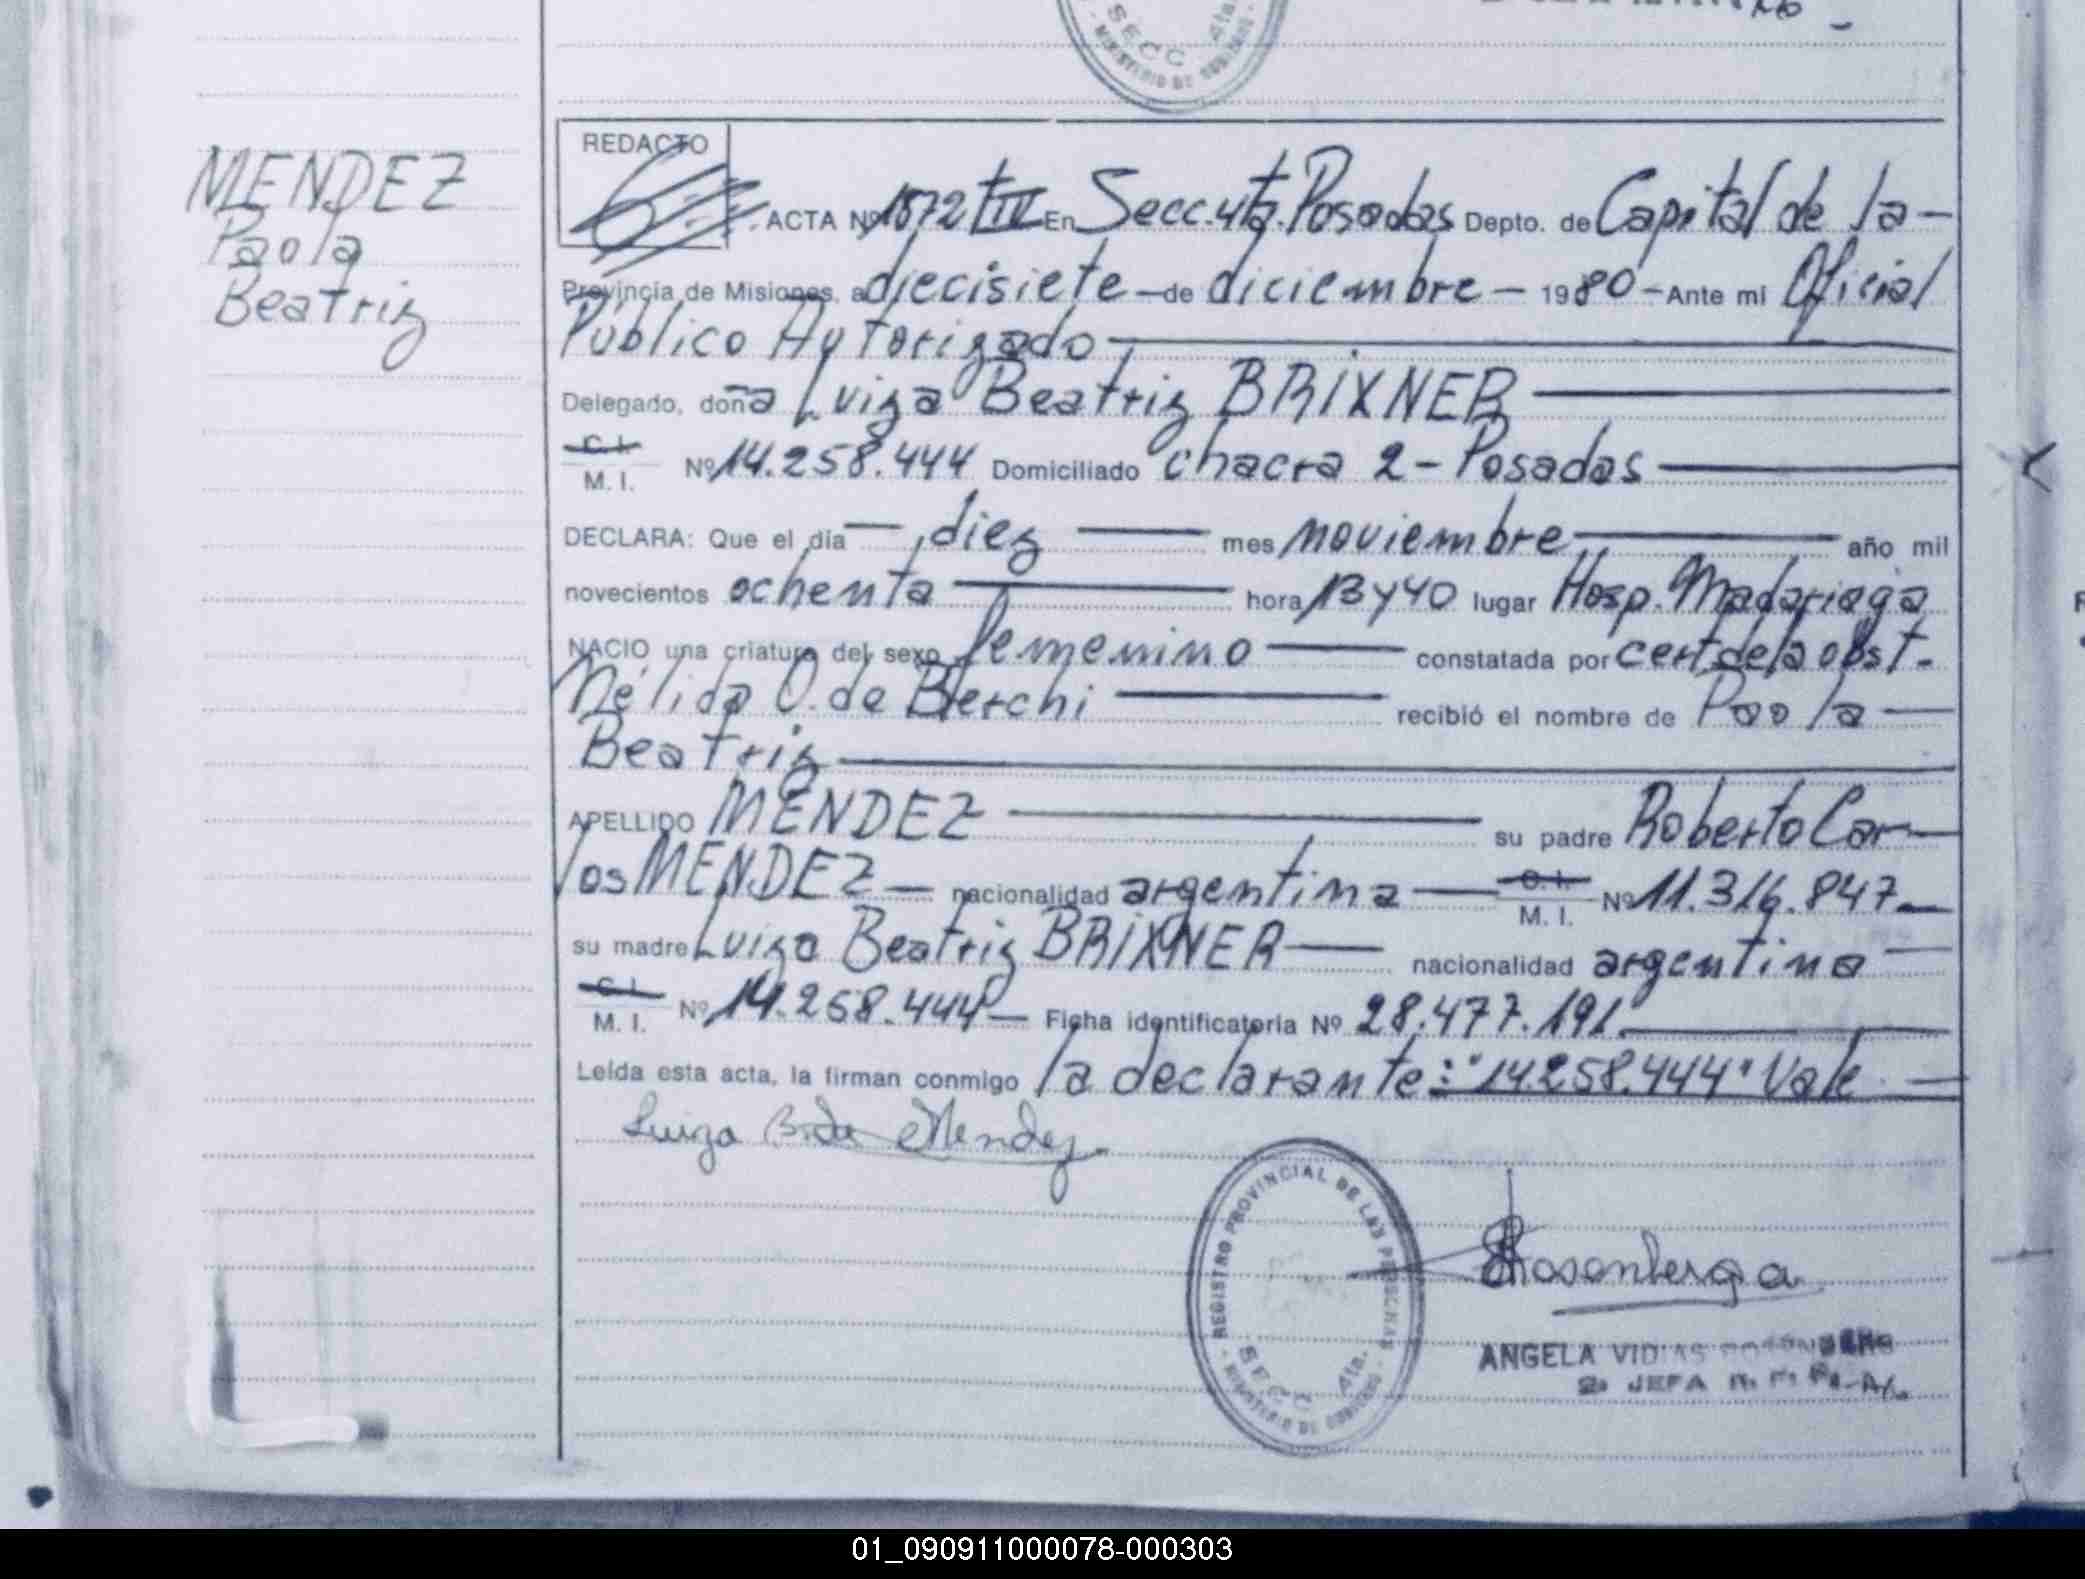 SECC 4ta.
MINISTERIO DE GOBIERNO
MENDEZ
Paola
Beatriz
REDACTO
ACTA Nº 1572 tIV En Secc. 4ta. Posadas Depto. de Capital de la —
Provincia de Misiones, a diecisiete — de diciembre — 1980 — Ante mi Oficial
Público Autorizado
Delegado, doña Luiza Beatriz BRIXNER
C. I.
M. I. Nº 14.258.444 Domiciliado chacra 2 - Posadas
DECLARA: Que el día — diez — mes noviembre — año mil
novecientos ochenta — hora 13 y 40 lugar Hosp. Madariaga
NACIO una criatura del sexo femenino — constatada por cert. de la obst.
Nélida O. de Bierchi — recibió el nombre de Paola —
Beatriz
APELLIDO MENDEZ — su padre Roberto Car—
los MENDEZ — nacionalidad argentina — C. I. M. I. Nº 11.316.847 —
su madre Luiza Beatriz BRIXNER — nacionalidad argentina —
C. I.
M. I. Nº 14.258.444 — Ficha identificatoria Nº 28.477.191.
Leída esta acta, la firman conmigo la declarante: "14.258.444" Vale —
Luiza B. de Mendez
REGISTRO PROVINCIAL DE LAS PERSONAS
SECC 4ta.
MINISTERIO DE GOBIERNO
Rosenberg a
ANGELA VIDIAS ROSENBERG
2º JEFA
01_090911000078-000303